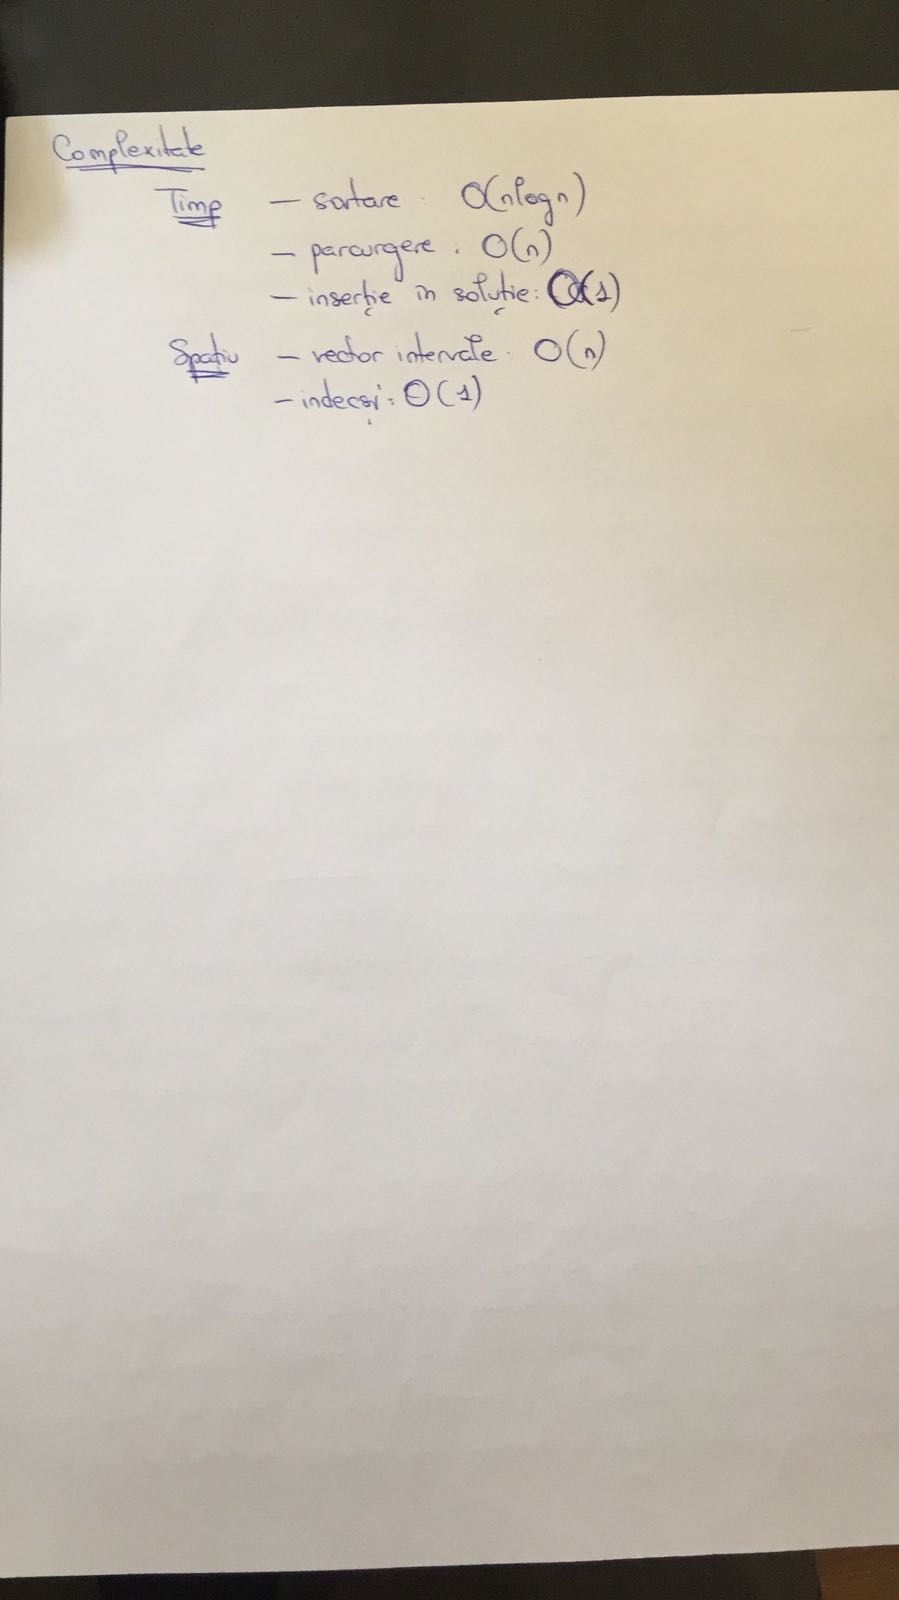 Complexitate
Timp - sortare: O(nlogn)
- parcurgere: O(n)
- inserție în soluție: O(1)
Spațiu - vector intervale: O(n)
- indecși: O(1)